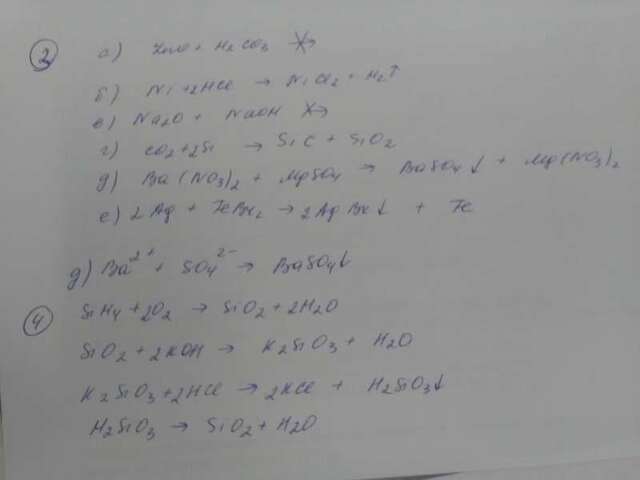 2 а) ZnO + H2CO3 ↛
б) Ni + 2HCl → NiCl2 + H2↑
в) Na2O + NaOH ↛
г) CO2 + 2Si → SiC + SiO2
д) Ba(NO3)2 + MgSO4 → BaSO4↓ + Mg(NO3)2
е) 2Ag + FeBr2 → 2AgBr↓ + Fe
д) Ba2+ + SO4 2- → BaSO4↓
4 SiH4 + 2O2 → SiO2 + 2H2O
SiO2 + 2KOH → K2SiO3 + H2O
K2SiO3 + 2HCl → 2KCl + H2SiO3↓
H2SiO3 → SiO2 + H2O